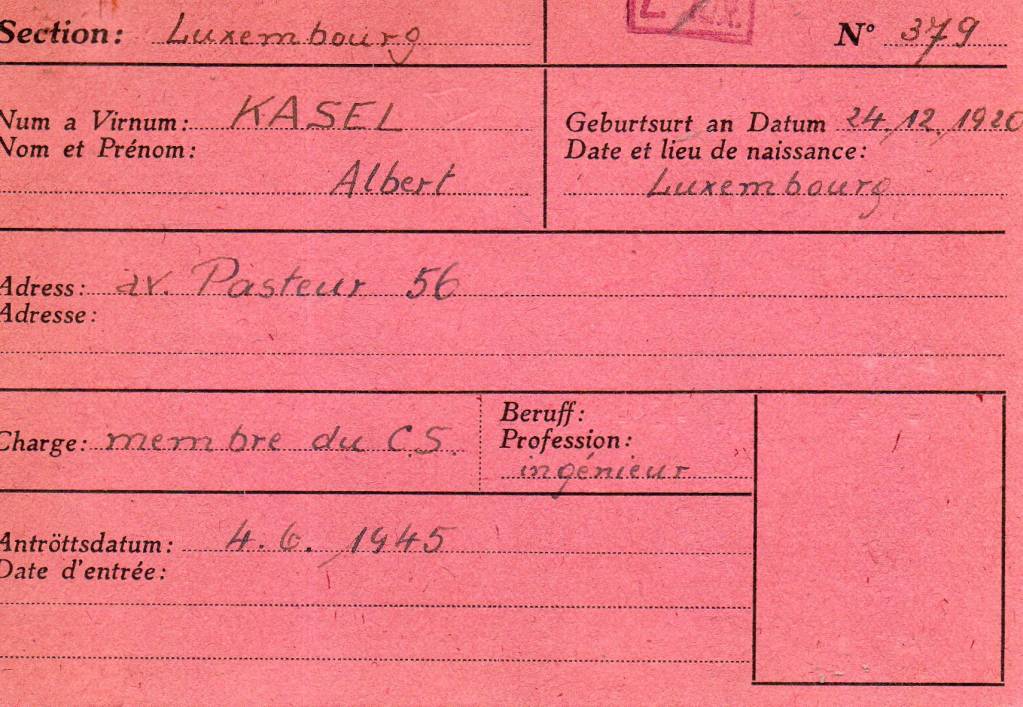 Section: Luxembourg
N° 379
Num a Virnum: KASEL
Nom et Prénom:
Albert
Geburtsurt an Datum 24.12.1920
Date et lieu de naissance:
Luxembourg
Adress: av. Pasteur 56
Adresse:
Charge: membre du C.S.
Beruff:
Profession:
ingénieur
Antröttsdatum: 4.6.1945
Date d'entrée: